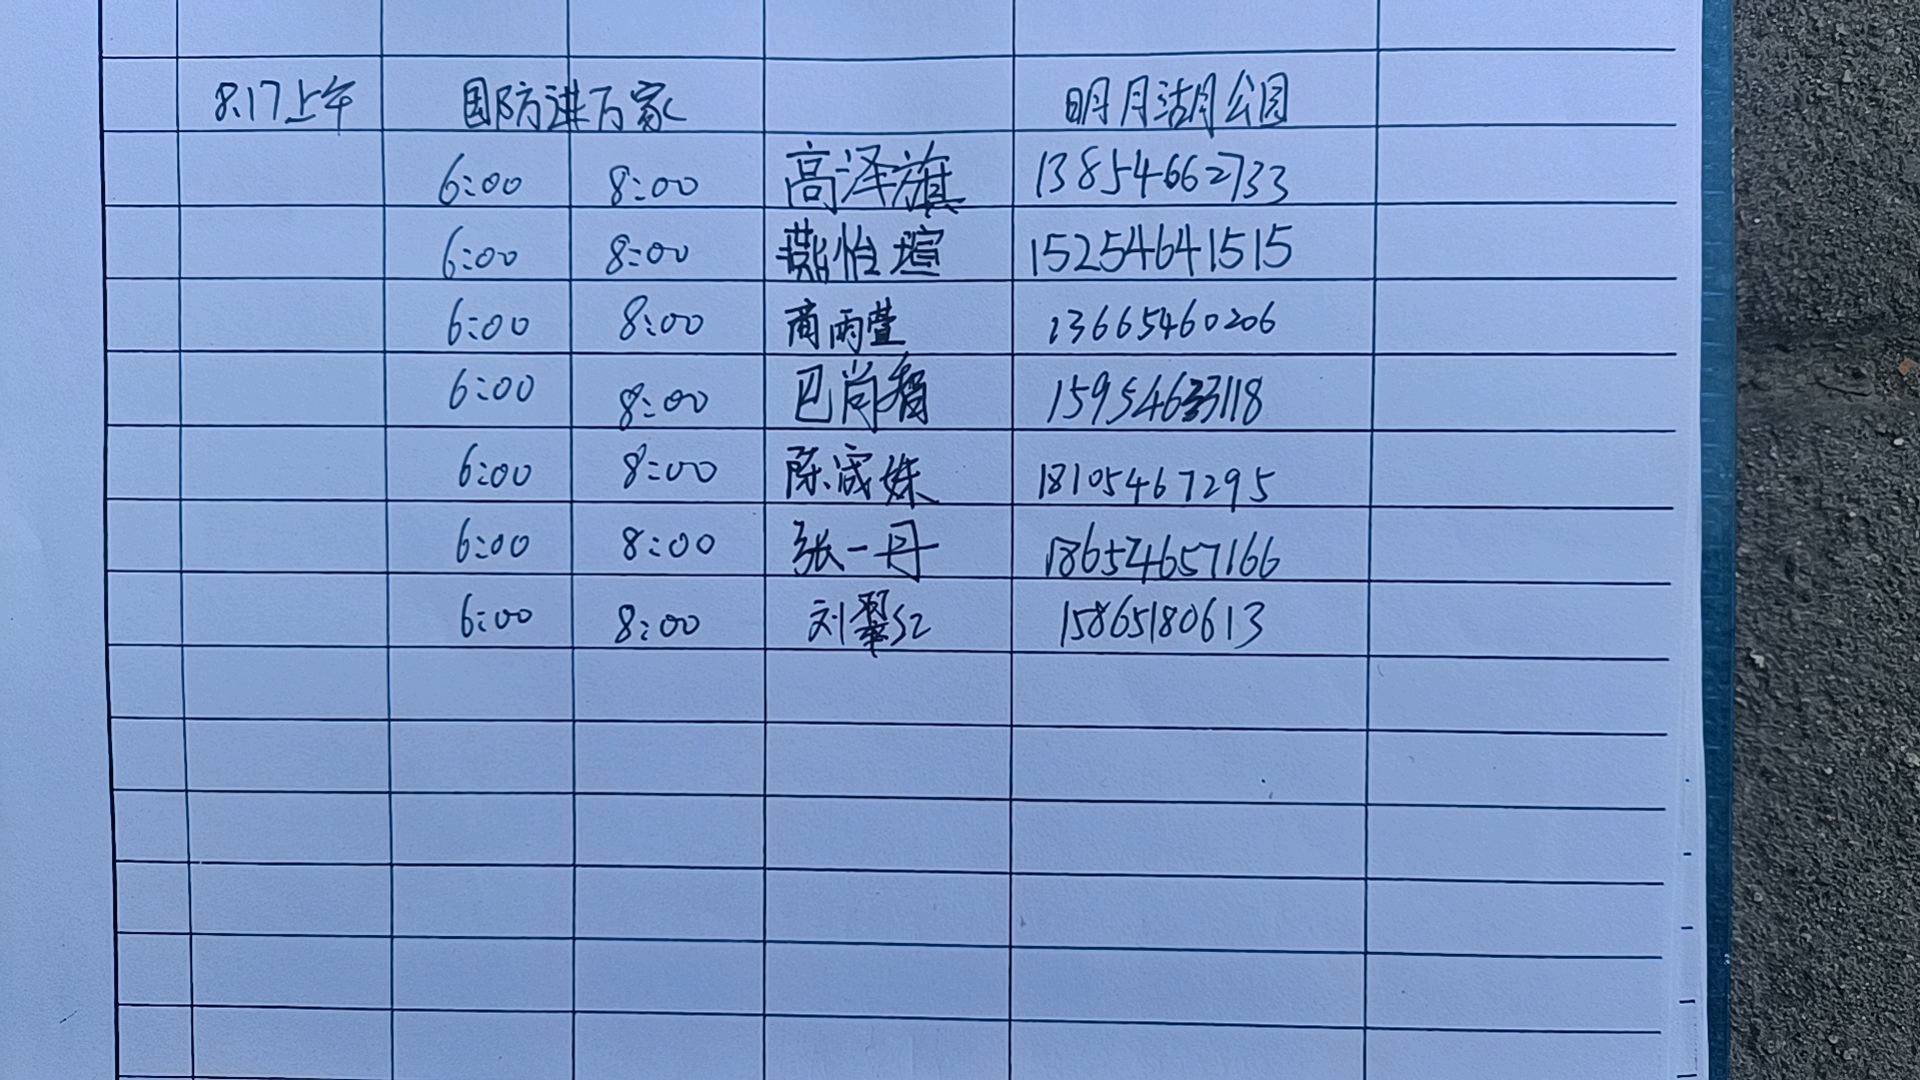 8.17上午 国防进万家 明月湖公园
6:00 8:00 高泽旗 13854662733
6:00 8:00 燕怡瑄 15254641515
6:00 8:00 商雨萱 13665460206
6:00 8:00 巴尚 15954633118
6:00 8:00 陈宬姝 18105467295
6:00 8:00 张一丹 18654657166
6:00 8:00 刘翠红 15865180613